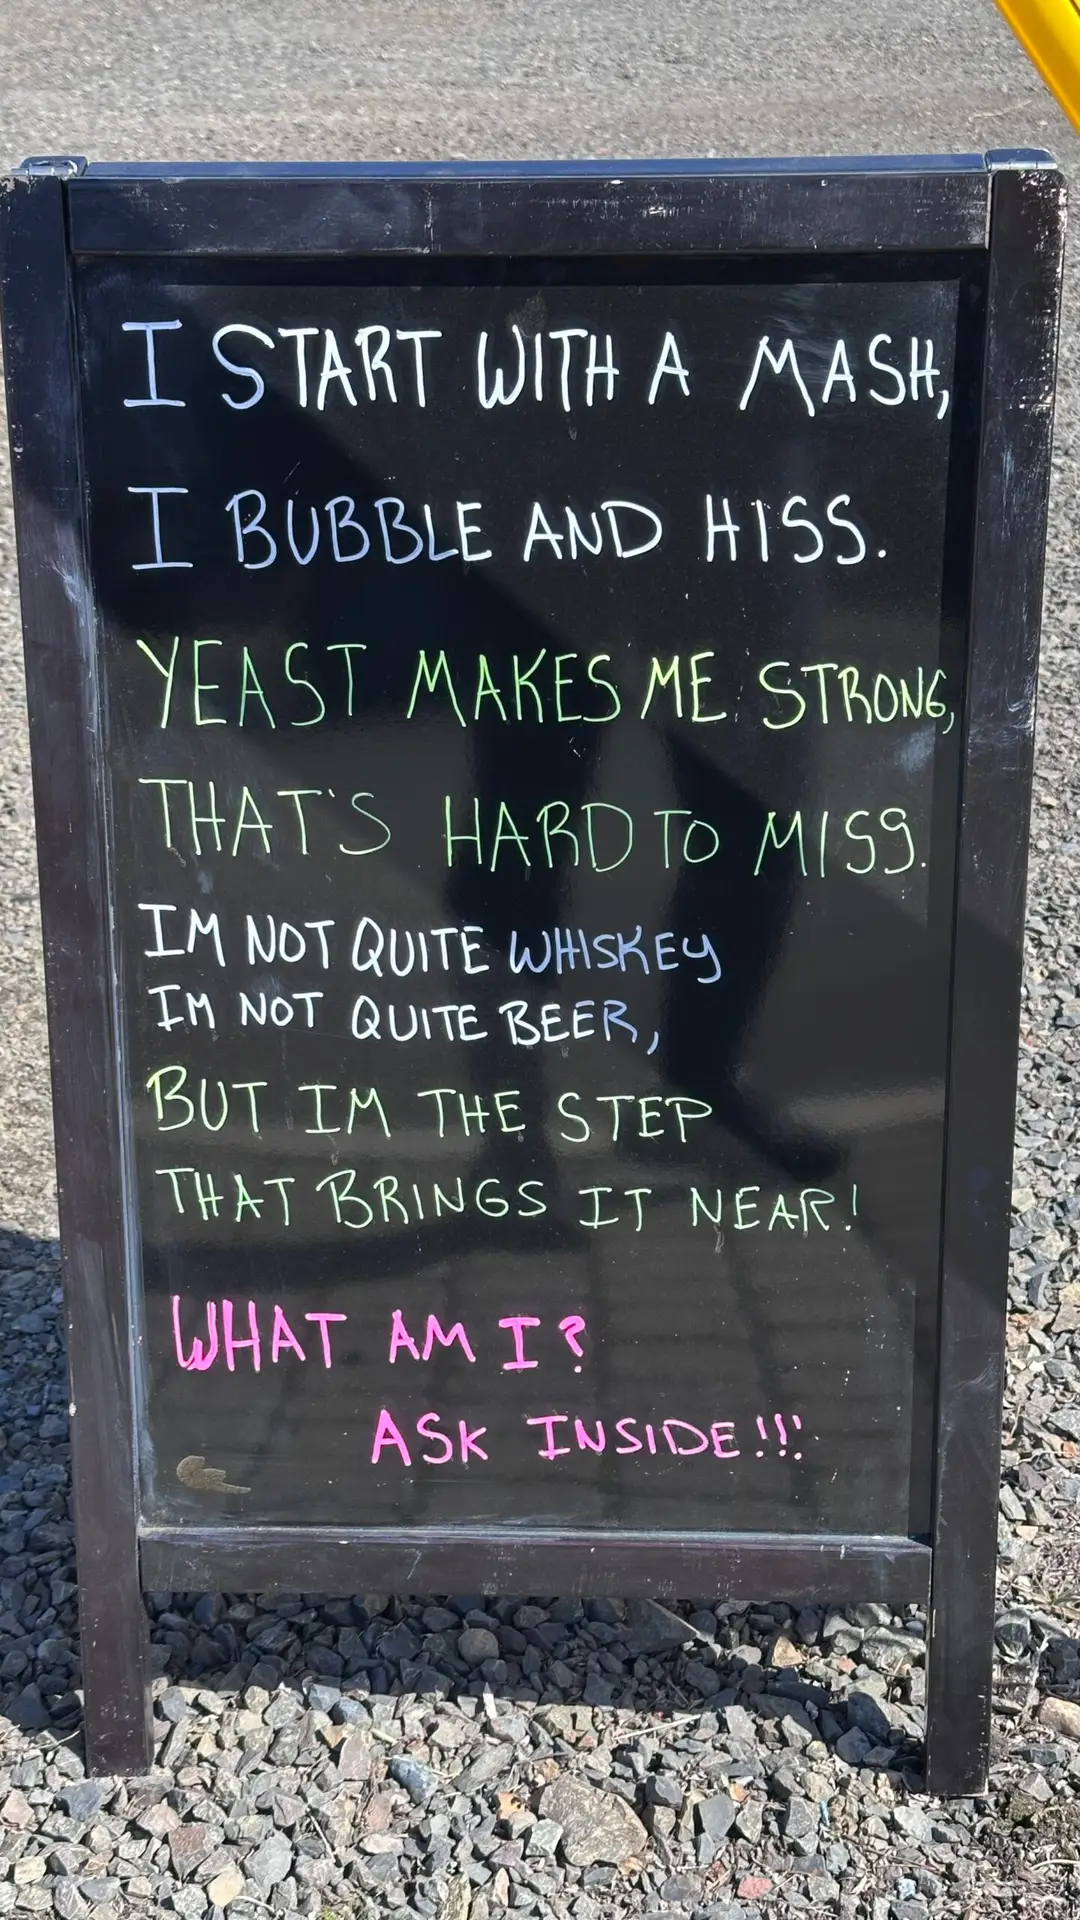 I START WITH A MASH,
I BUBBLE AND HISS.
YEAST MAKES ME STRONG,
THAT'S HARD TO MISS.
IM NOT QUITE WHISKEY
IM NOT QUITE BEER,
BUT IM THE STEP
THAT BRINGS IT NEAR!
WHAT AM I?
ASK INSIDE!!!